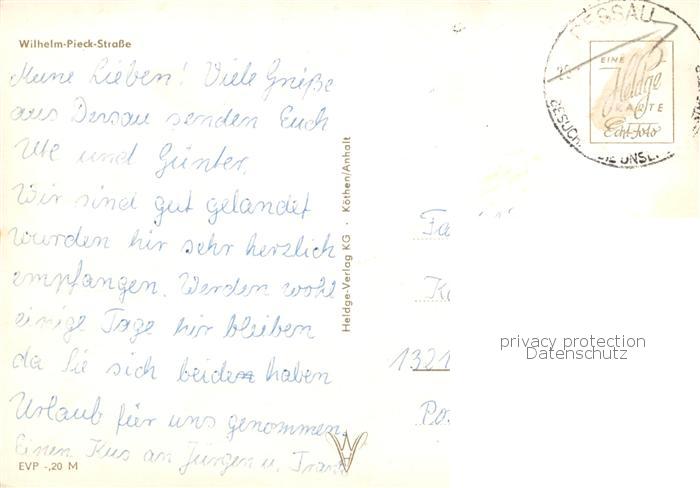 Wilhelm-Pieck-Straße
Meine Lieben! Viele Grüße
aus Dessau senden Euch
Ute und Günter.
Wir sind gut gelandet
wurden hir sehr herzlich
empfangen. Werden wohl
einige Tage hir bleiben
da Sie sich beide haben
Urlaub für uns genommen.
Einen Kus an Jürgen u.
EVP -,20 M
Heldge-Verlag KG · Köthen/Anhalt
DESSAU
EINE
Heldge
KARTE
Echt-Foto
Fa
1321
Po
privacy protection
Datenschutz